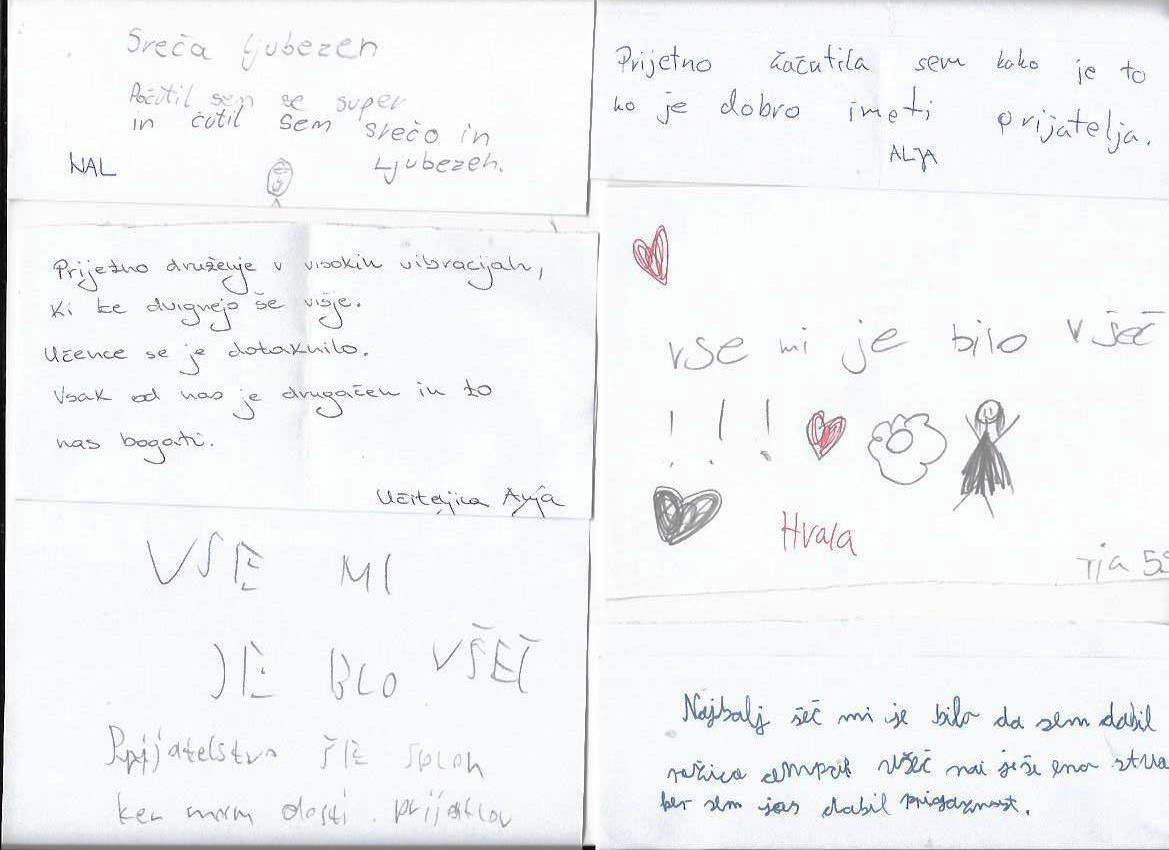 Sreča Ljubezen
Počutil sem se super
in čutil sem srečo in
Ljubezen.
NAL
Prijetno druženje v visokih vibracijah,
ki te dvignejo še višje.
Učence se je dotaknilo.
Vsak od nas je drugačen in to
nas bogati.
Učiteljica Anja
VSE MI
JE BLO VŠEČ
Prijatelstvo ŠE sploh
ker mam dosti prijatlov
Prijetno začutila sem kako je to
ko je dobro imeti prijatelja.
ALJA
vse mi je bilo všeč
! ! !
Hvala
Tja 5.
Najbalj šeč mi je bilo da sem dabil
ražico ampak všeč mi je še ena stva
ker sem jas dabil